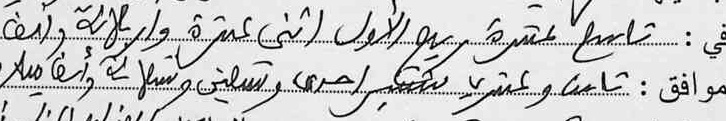 في : تاسع عشرة ربيع الأول اثنى عشرة وأربعمائة وألف
موافق : ثامن وعشرين شتنبر إحدى وتسعين وتسعمائة وألف ميلادية